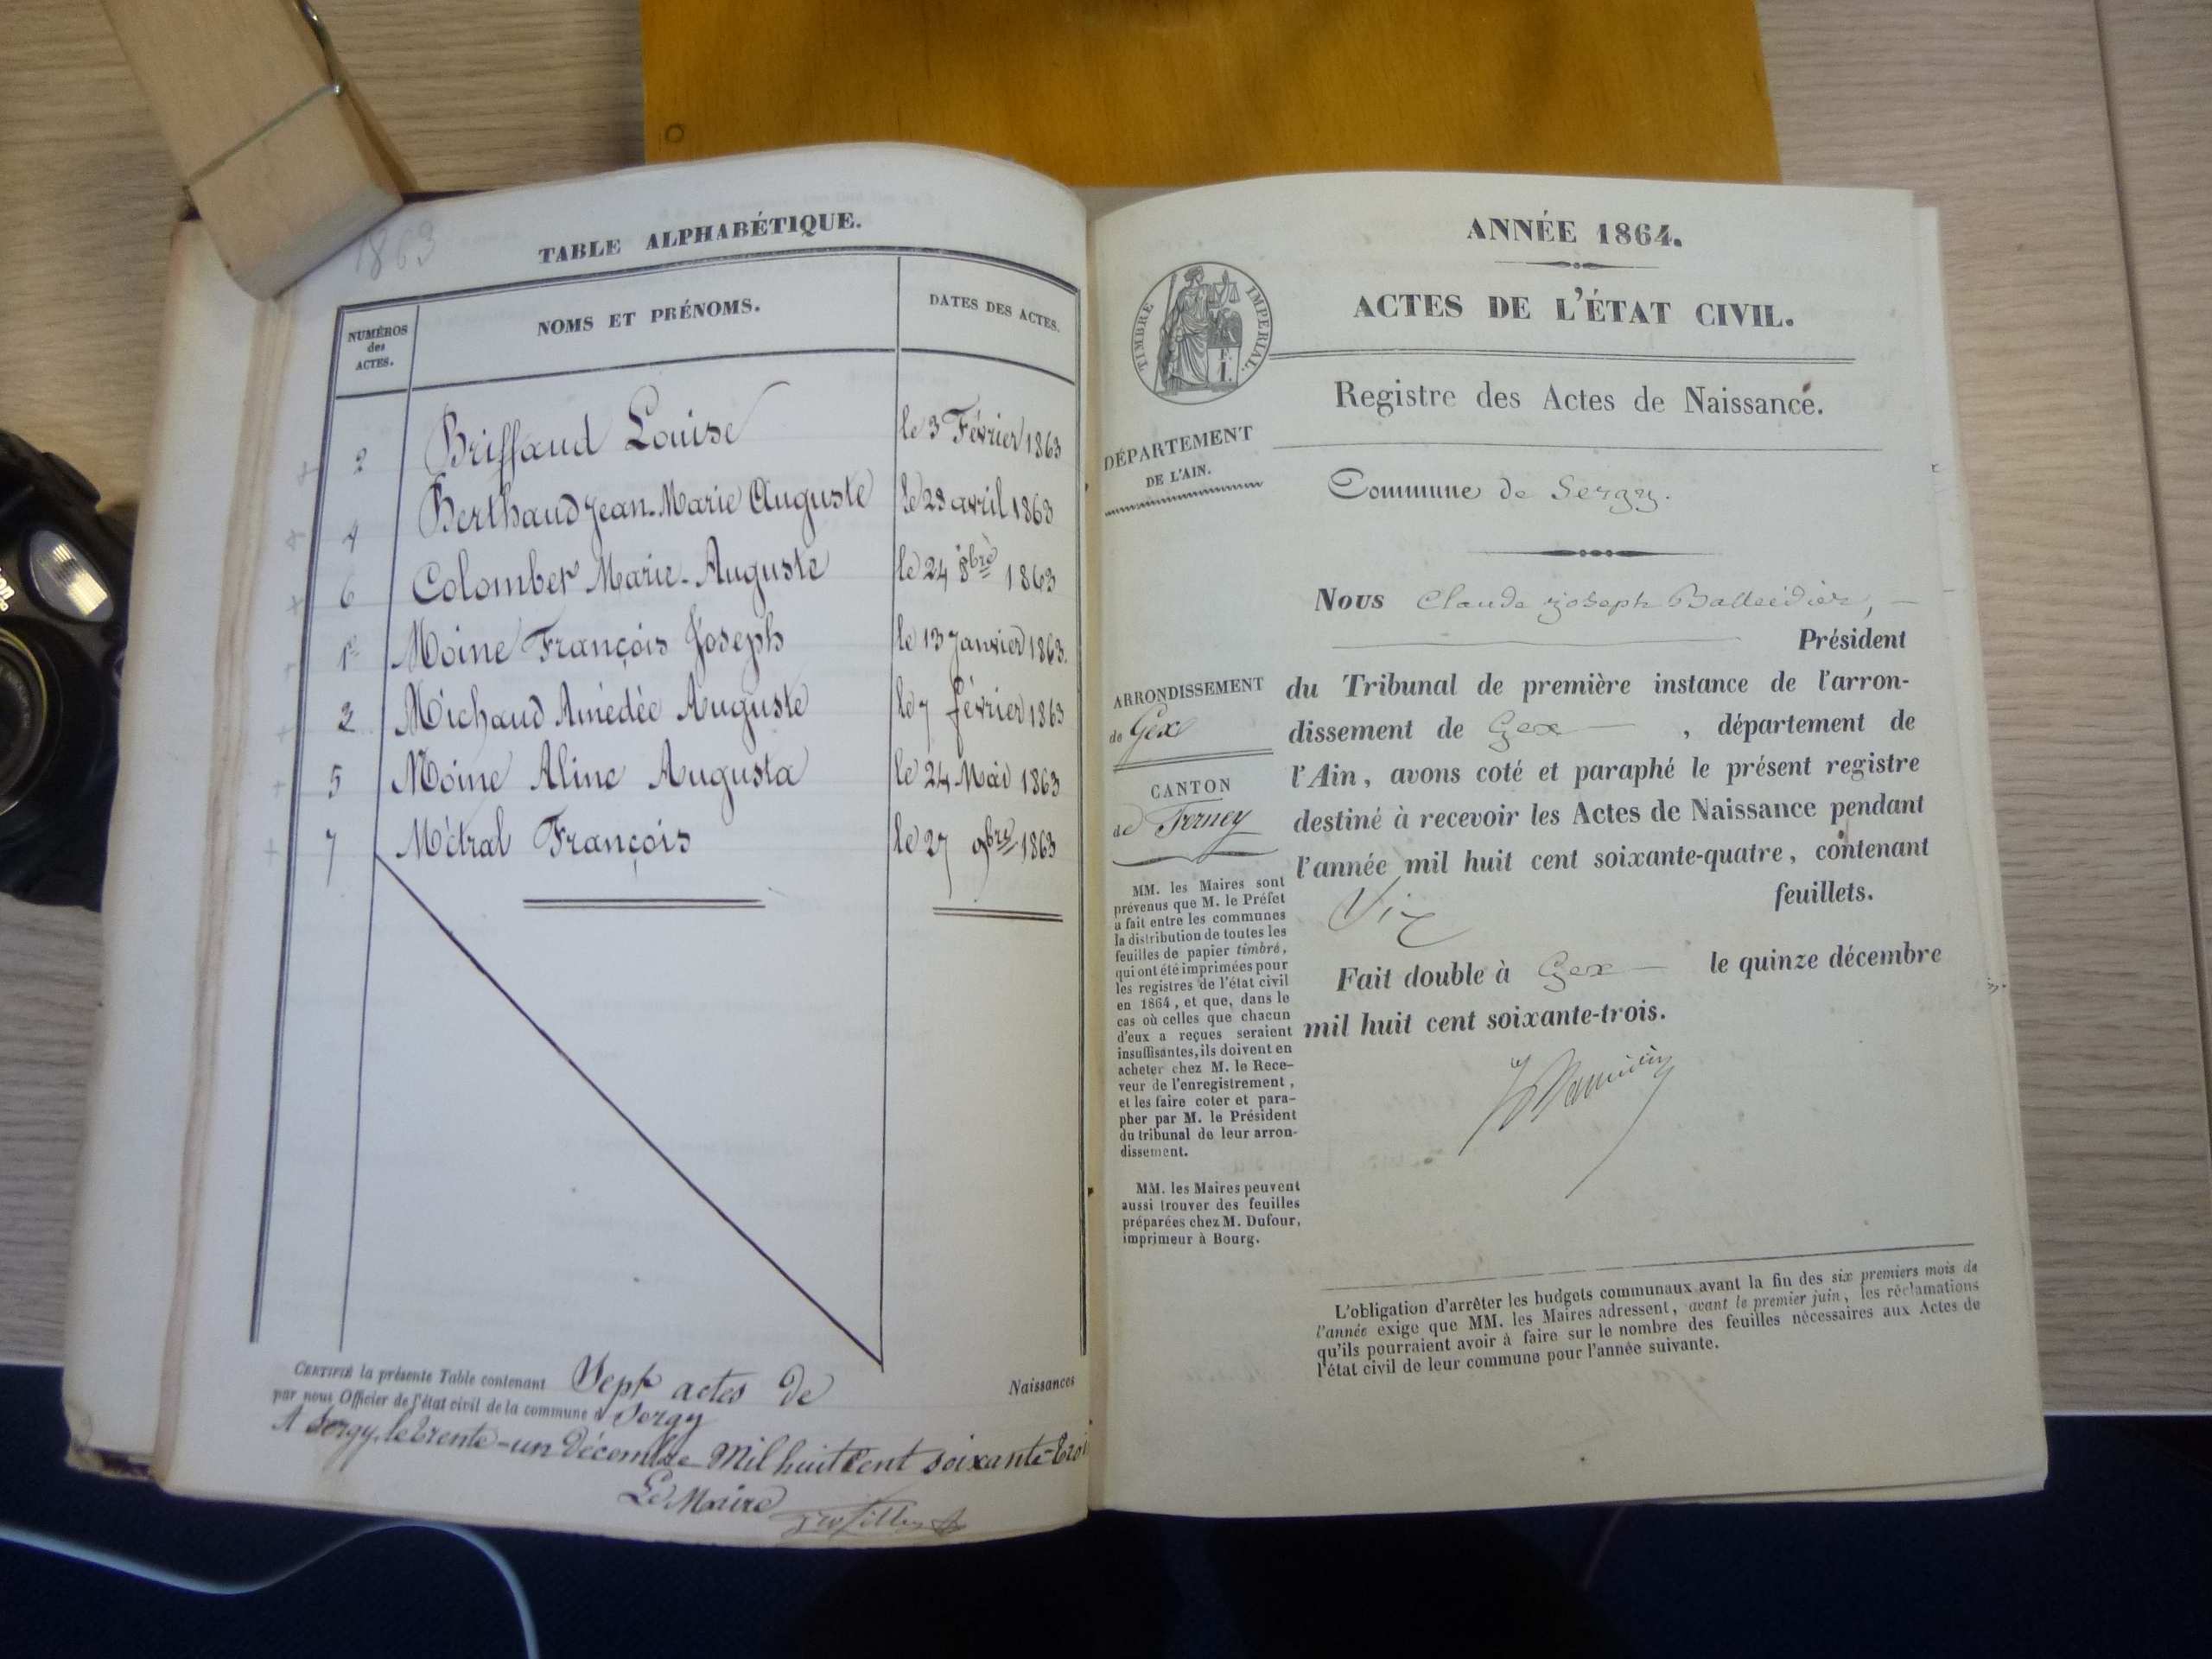 1863
TABLE ALPHABÉTIQUE.
NUMÉROS des ACTES.
NOMS ET PRÉNOMS.
DATES DES ACTES.
2 Briffaud Louise le 3 Février 1863
4 Berthaud Jean-Marie Auguste le 28 avril 1863
6 Colomber Marie-Auguste le 24 8bre 1863
1er Moine François Joseph le 13 Janvier 1863.
3 Michaud Amédée Auguste le 7 février 1863
5 Moine Aline Augusta le 24 Mai 1863
7 Métral François le 27 9bre 1863
CERTIFIÉ la présente Table contenant Sept actes de Naissances
par nous Officier de l'état civil de la commune d Sergy
A Sergy, le trente-un Décembre Mil huit Cent soixante-troi
Le Maire
ANNÉE 1864.
ACTES DE L'ÉTAT CIVIL.
TIMBRE IMPÉRIAL.
Registre des Actes de Naissance.
DÉPARTEMENT
DE L'AIN.
Commune de Sergy.
Nous Claude Joseph
Président
ARRONDISSEMENT
de Gex
CANTON
de Ferney
du Tribunal de première instance de l'arron-
dissement de Gex , département de
l'Ain, avons coté et paraphé le présent registre
destiné à recevoir les Actes de Naissance pendant
l'année mil huit cent soixante-quatre, contenant
Six feuillets.
Fait double à Gex le quinze décembre
mil huit cent soixante-trois.
MM. les Maires sont
prévenus que M. le Préfet
a fait entre les communes
la distribution de toutes les
feuilles de papier timbré,
qui ont été imprimées pour
les registres de l'état civil
en 1864, et que, dans le
cas où celles que chacun
d'eux a reçues seraient
insuffisantes, ils doivent en
acheter chez M. le Rece-
veur de l'enregistrement,
et les faire coter et para-
pher par M. le Président
du tribunal de leur arron-
dissement.
MM. les Maires peuvent
aussi trouver des feuilles
préparées chez M. Dufour,
imprimeur à Bourg.
L'obligation d'arrêter les budgets communaux avant la fin des six premiers mois de
l'année exige que MM. les Maires adressent, avant le premier juin, les réclamations
qu'ils pourraient avoir à faire sur le nombre des feuilles nécessaires aux Actes de
l'état civil de leur commune pour l'année suivante.